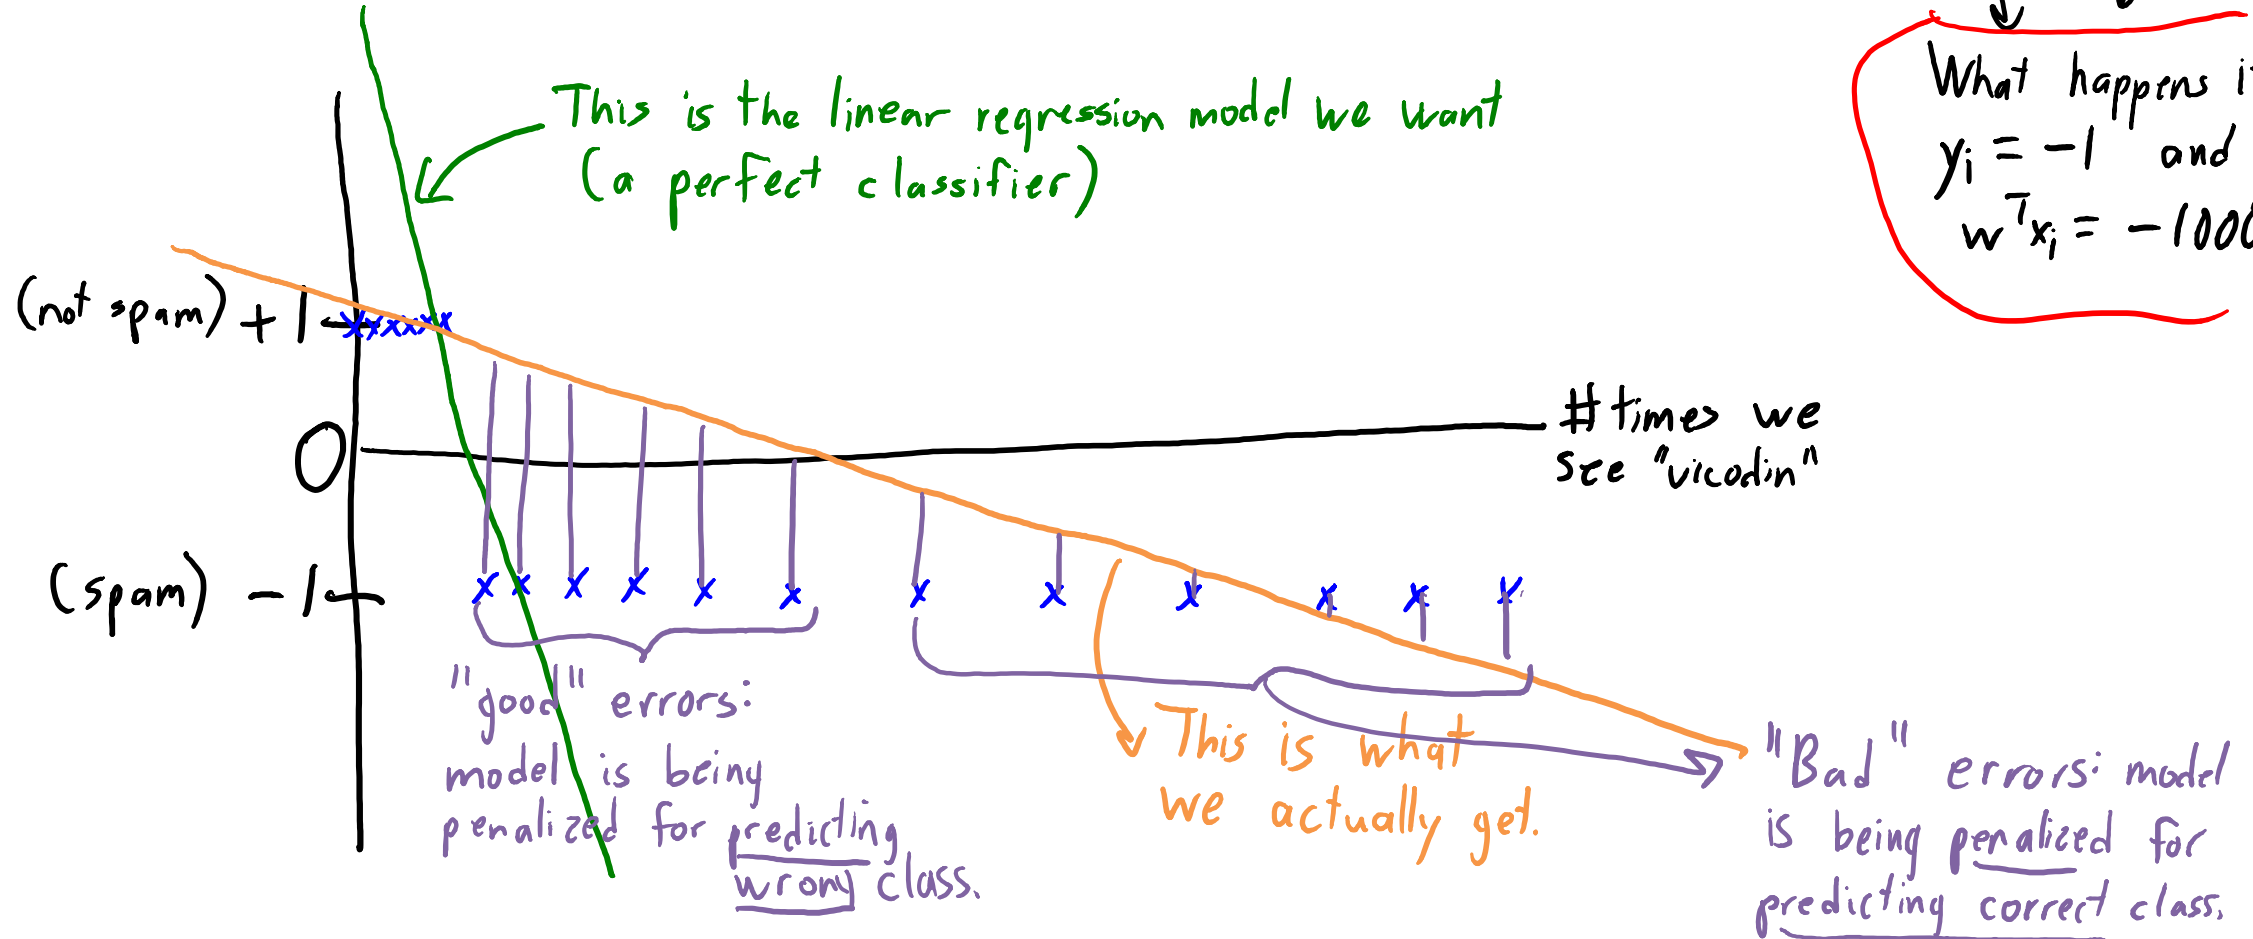 This is the linear regression model we want
(a perfect classifier)
What happens
y_i = -1 and
w^T x_i = -1000
(not spam) +1
0
# times we
see "vicodin"
(spam) -1
"good" errors:
model is being
penalized for predicting
wrong class.
This is what
we actually get.
"Bad" errors: model
is being penalized for
predicting correct class.